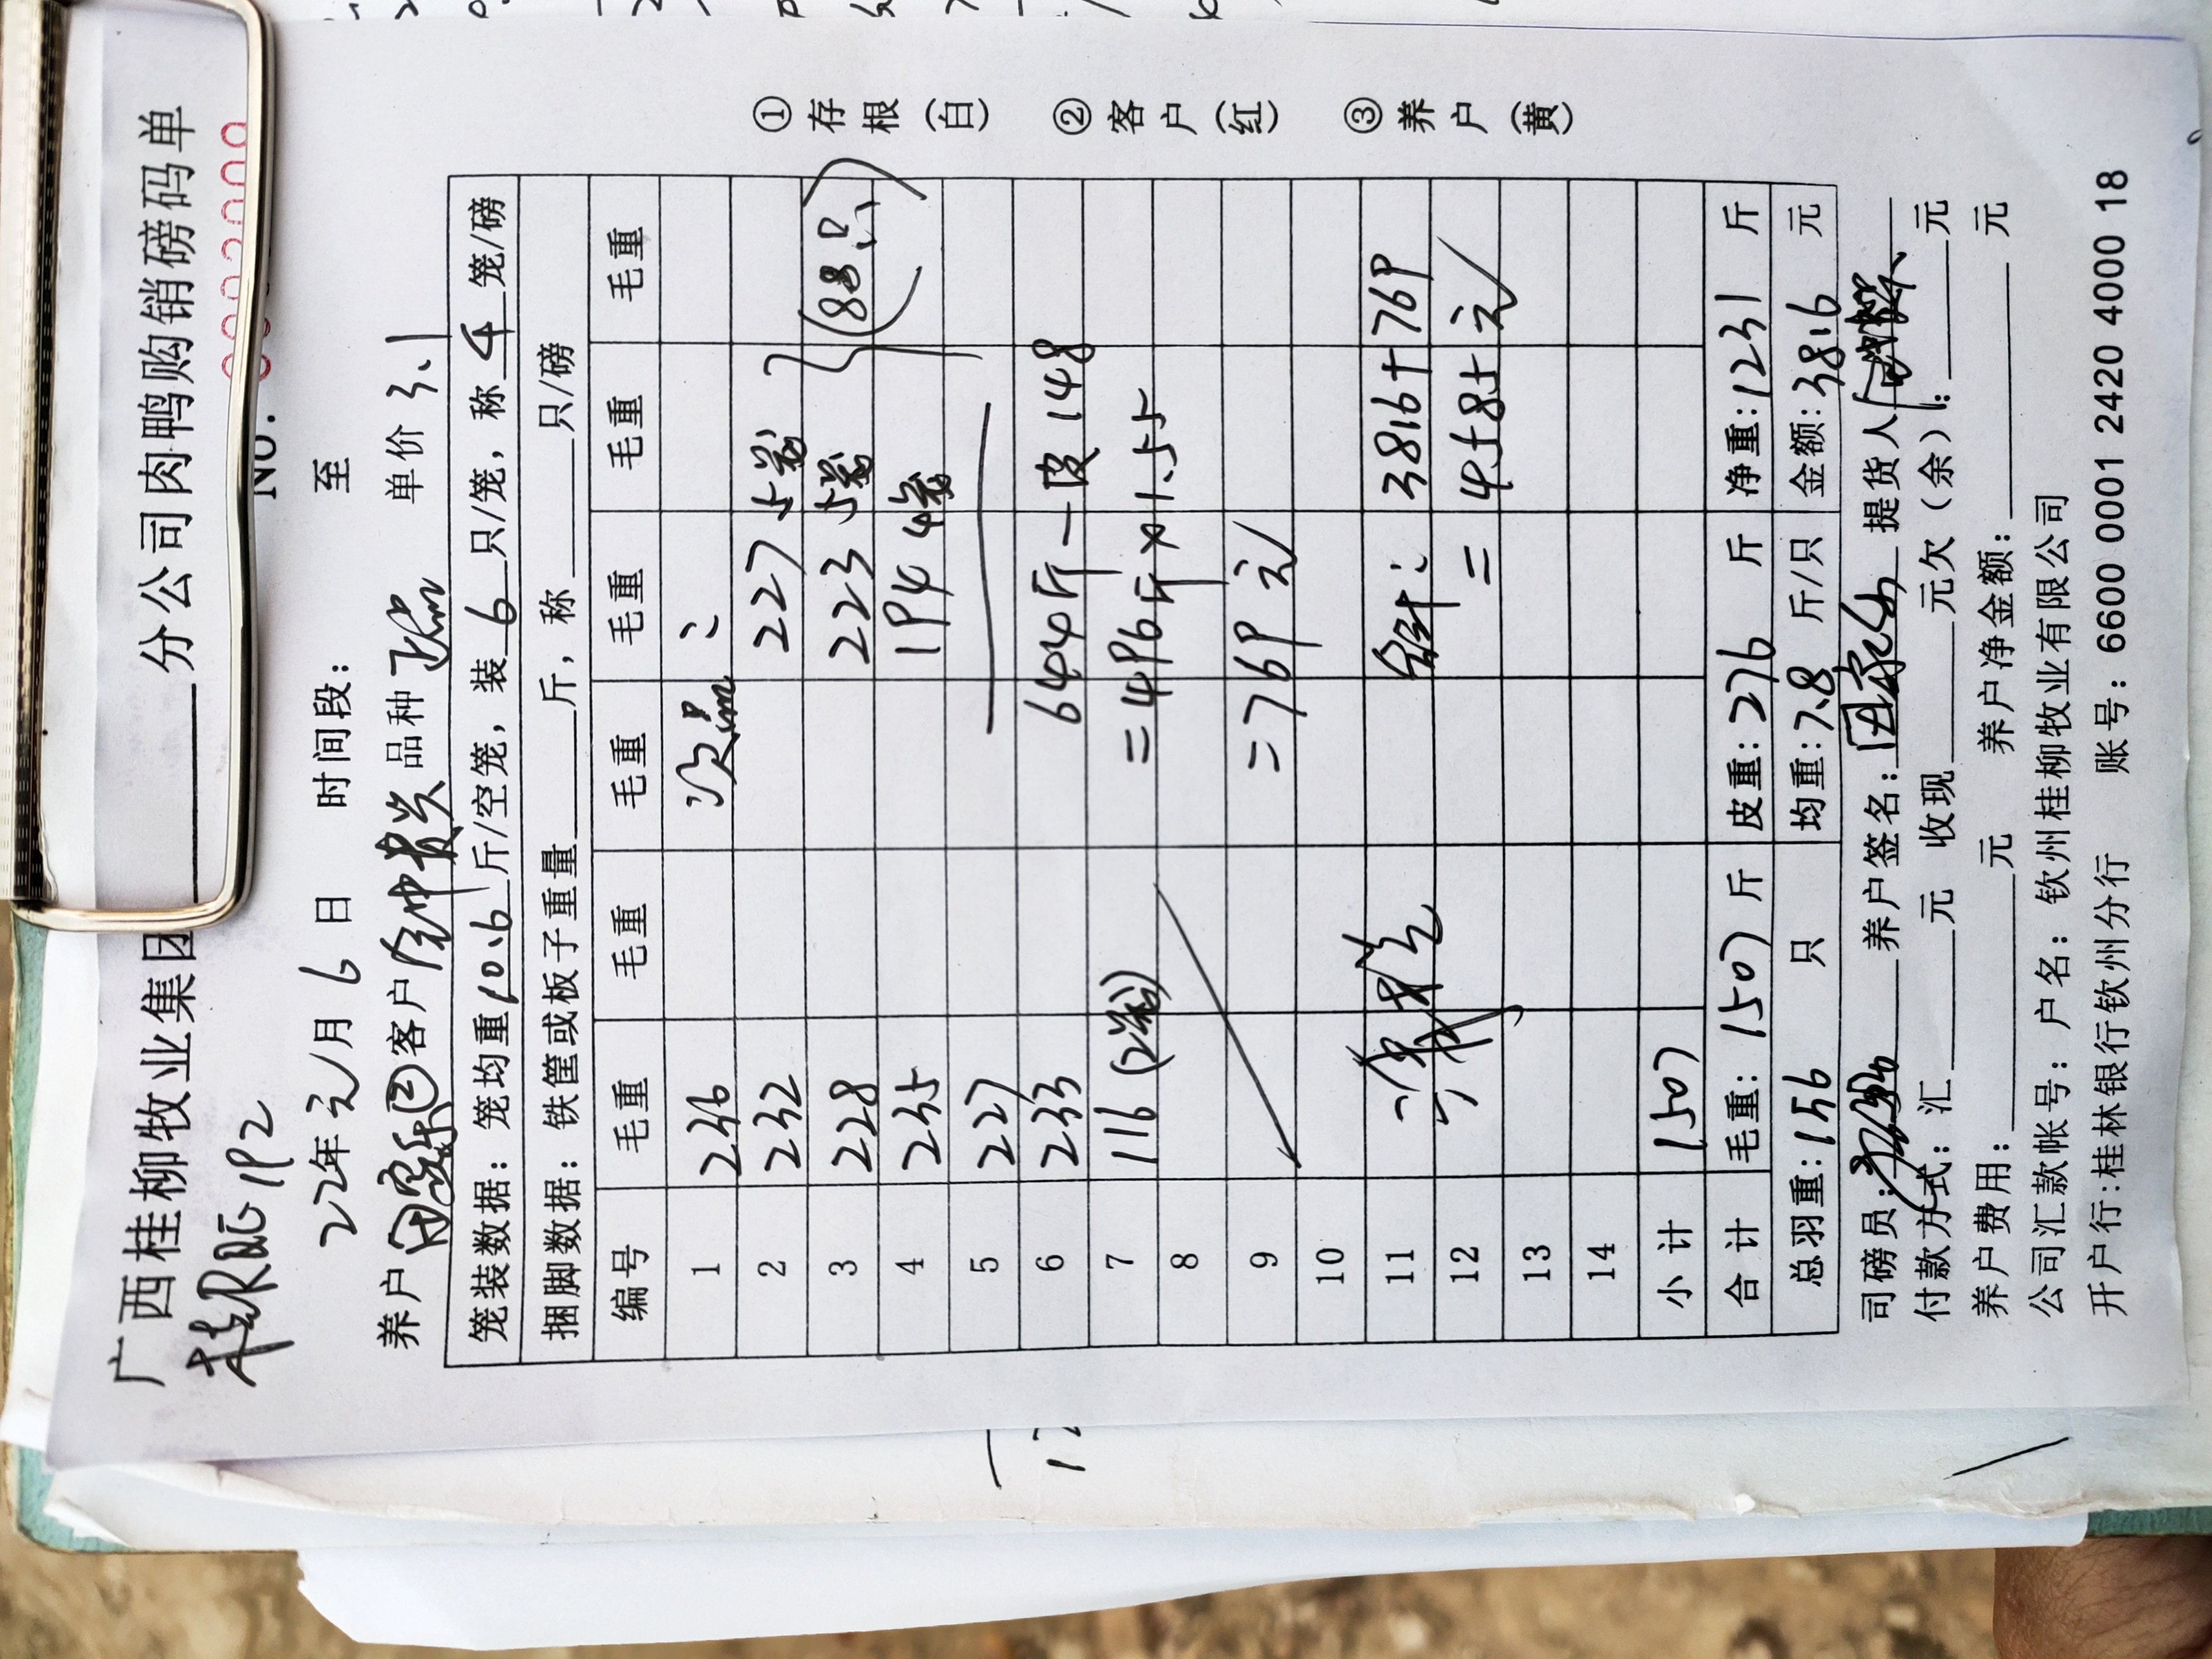 广西桂柳牧业集团 分公司肉鸭购销磅码单
NO.
22年元月6日 时间段： 至
养户 客户 品种 正品 单价 3.1
笼装数据：笼均重10.6斤/空笼，装6只/笼，称4笼/磅
捆脚数据：铁筐或板子重量 斤，称 只/磅
编号 毛重 毛重 毛重 毛重 毛重 毛重
1 236 次品：
2 232 227 5笼
3 228 223 5笼 (88只)
4 235 194 4笼
5 227
6 233 644斤-皮148
7 116 (2笼) =496斤×1.55
8
9 =769元
10
11 合计：3816+769
12 =4585元
13
14
小计 1507
合计 毛重：1507斤 皮重：276斤 净重：1231斤
总羽重：156只 均重：7.8斤/只 金额：3816元
司磅员： 养户签名： 提货人
付款方式：汇 元 收现 元欠（余）： 元
养户费用： 元 养户净金额： 元
公司汇款帐号：户名：钦州桂柳牧业有限公司
开户行：桂林银行钦州分行 账号：6600 0001 2420 4000 18
①存根（白） ②客户（红） ③养户（黄）